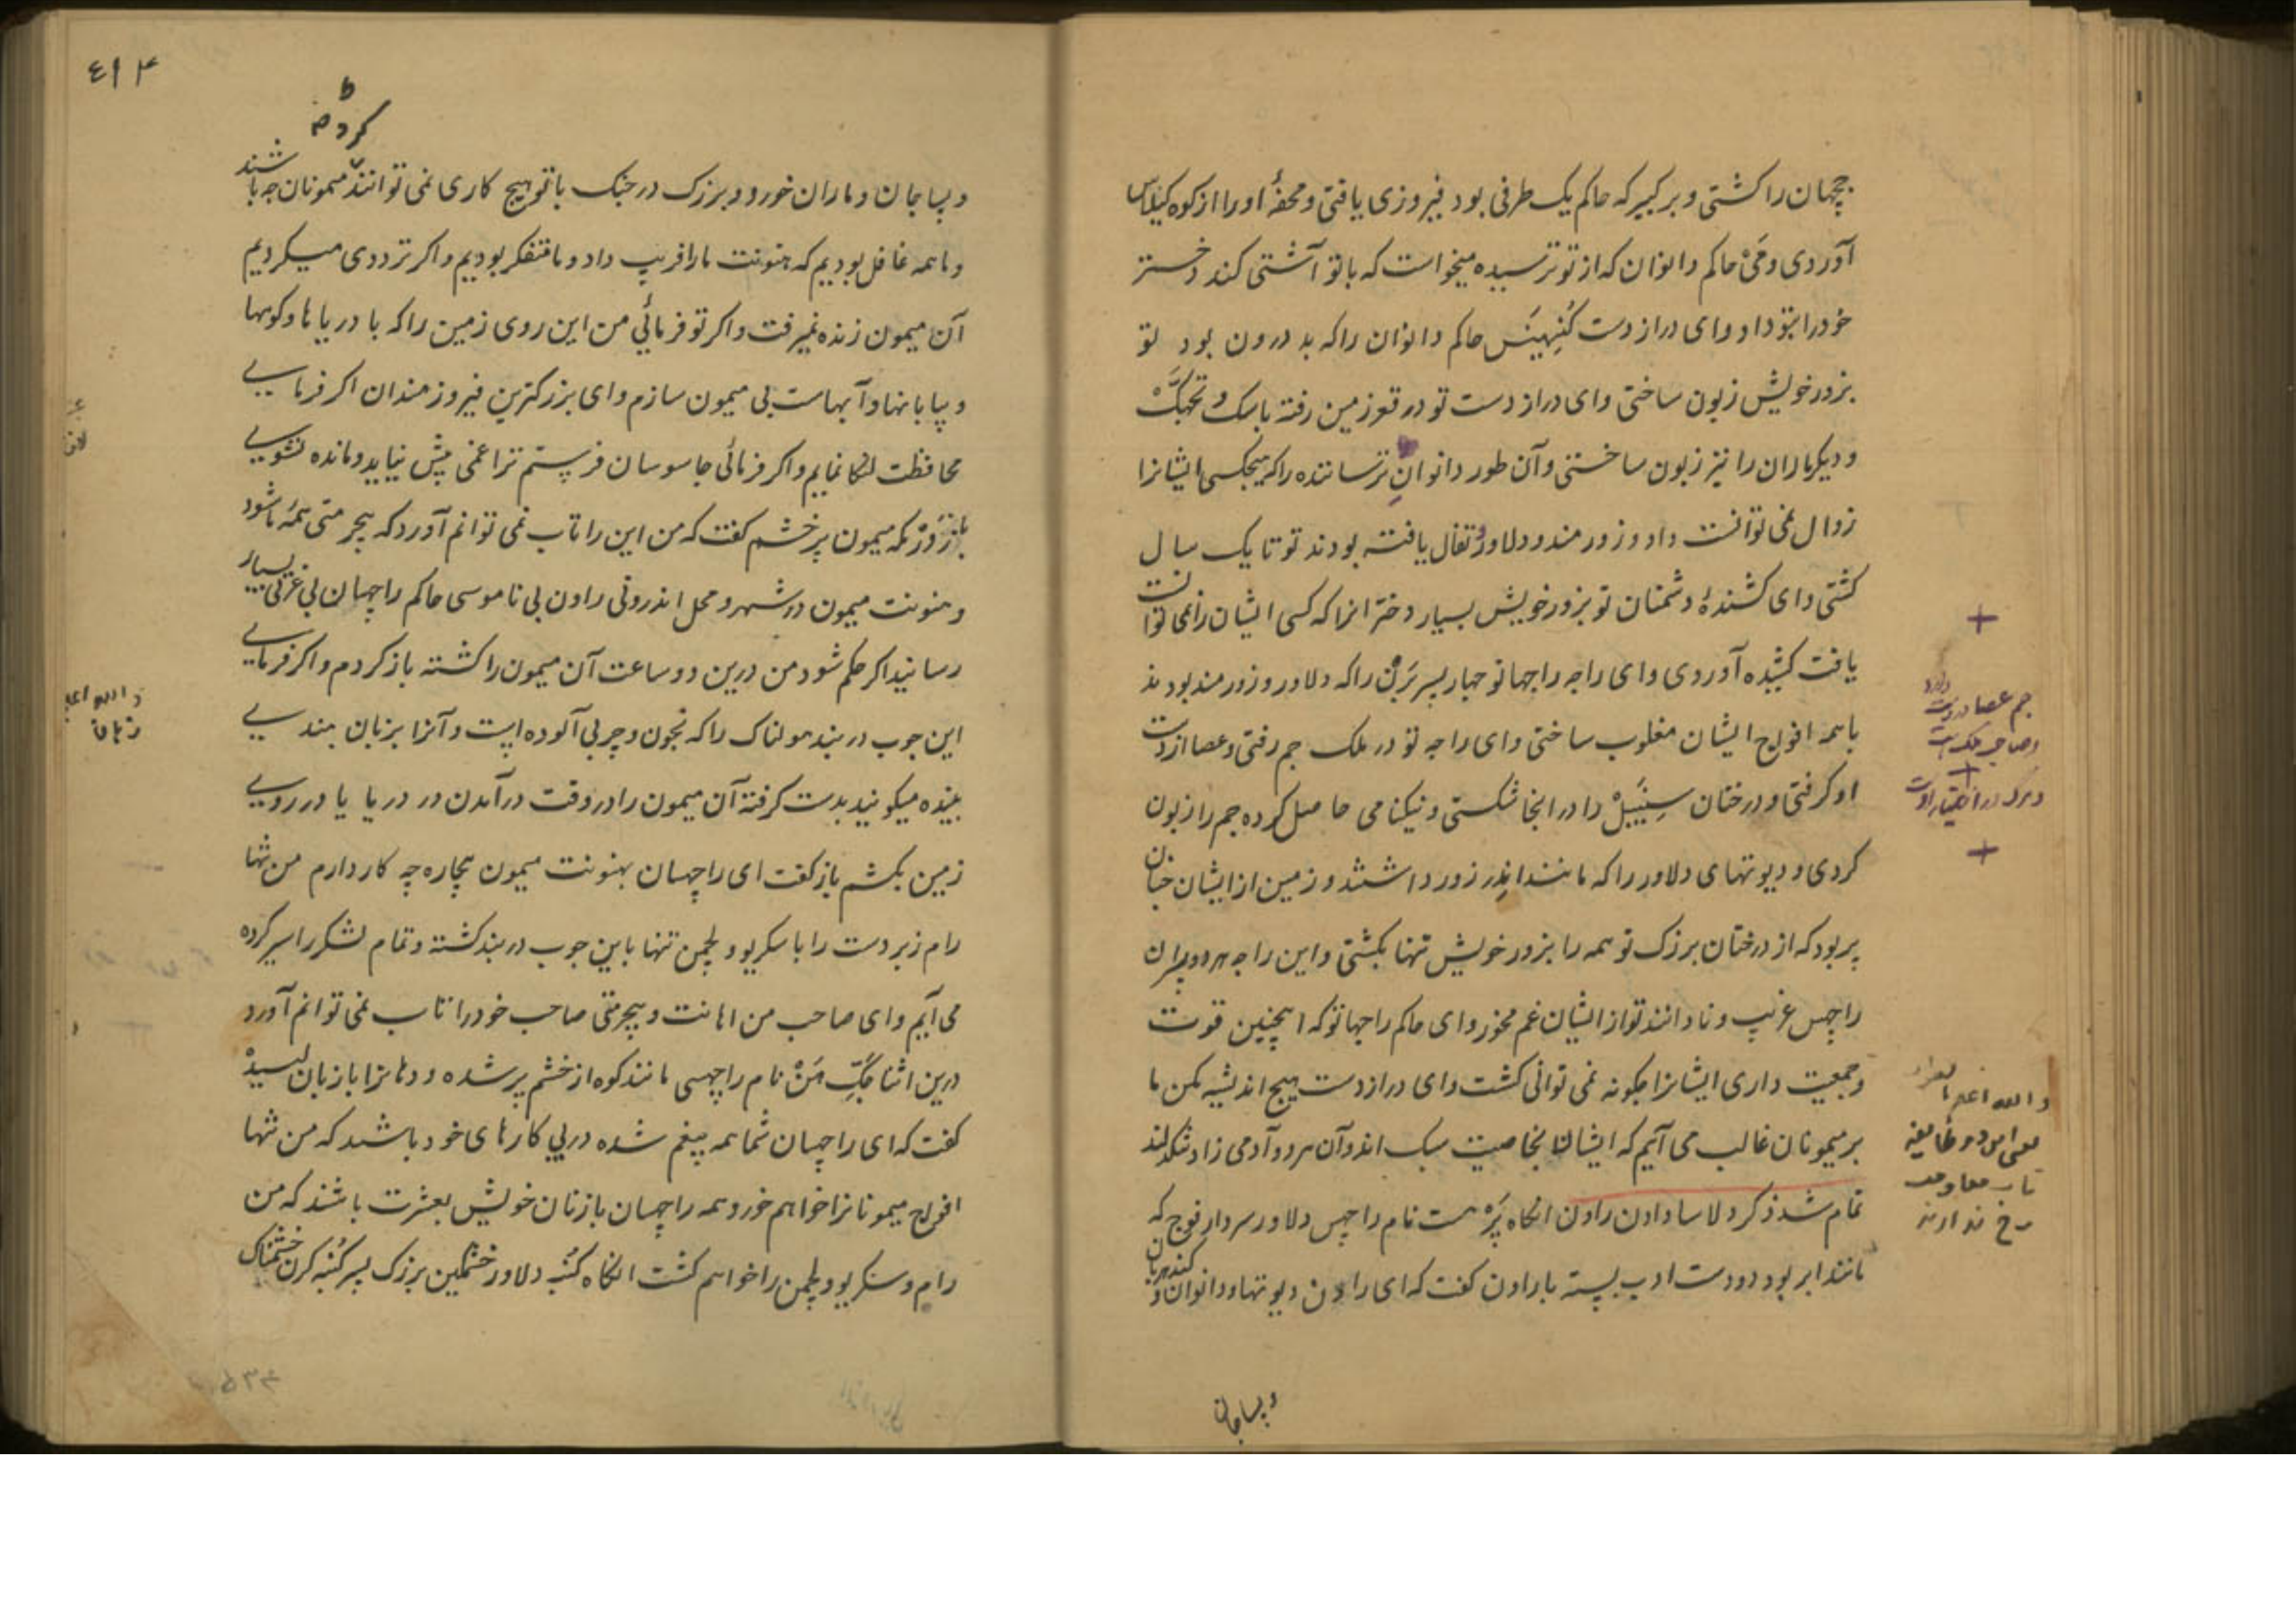 چهان را کشتی و بر کبیر که حاکم یک طرفی بود فیروزی یافتی و محفهٔ او را از کوه کیلاس
آوردی و می حاکم دانوان که از تو ترسیده میخواست که با تو آشتی کند دختر
خود را بتو داد و ای دراز دست کنبهینس حاکم دانوان را که بد درون بود تو
بزور خویش زبون ساختی و ای دراز دست تو در قعر زمین رفته باسک و تچهک
و دیگر ماران را نیز زبون ساختی و آن طور دانوان ترساننده را که هیچکس ایشانرا
زوال نمی توانست داد و زورمند و دلاور و تفال یافته بودند تو تا یک سال
کشتی و ای کشندهٔ دشمنان تو بزور خویش بسیار دخترانرا که کسی ایشان را نمی توانست
یافت کشیده آوردی و ای راجه راچهسا تو چهار پسر برن را که دلاور و زورمند بودند
با همه افواج ایشان مغلوب ساختی و ای راجه تو در ملک جم رفتی و عصا از دست
او گرفتی و درختان سینبل را در انجا شکستی و نیکنامی حاصل کرده جم را زبون
کردی و دیوتهای دلاور را که مانند اندر زور داشتند و زمین از ایشان چنان
پر بود که از درختان بزرگ تو همه را بزور خویش تنها بکشتی و این راجه هر دو پسران
راچس غریب و نادانند تو از ایشان غم مخور و ای حاکم راچهسا تو که اینچنین قوت
و جمعیت داری ایشانرا چگونه نمی توانی کشت و ای دراز دست هیچ اندیشه مکن ما
بر میمونان غالب می آئیم که ایشان بخاصیت سبک اند و آن هر دو آدمی زاد تنگدلند
تمام شد ذکر دلاسا دادن راون انگاه پرهست نام راچس دلاور سردار فوج که
مانند ابر بود دو دست ادب بسته با راون گفت که ای راون دیوتها و دانوان و گندهربان
و پساچان
جم عصا در دست دارد
و صاحب ملک است
و مرگ در اختیار اوست
٤١٣
و پساچان و ماران خورد و بزرگ در جنگ با تو هیچ کاری نمی توانند کرد میمونان چه باشند
و ما همه غافل بودیم که هنونت ما را فریب داد و ما متفکر بودیم و اگر ترددی میکردیم
آن میمون زنده نمیرفت و اگر تو فرمائی من این روی زمین را که با دریاها و کوهها
و بیابانها و آبهاست بی میمون سازم و ای بزرگترین فیروزمندان اگر فرمایی
محافظت لنکا نمایم و اگر فرمائی جاسوسان فرستم ترا غمی پیش نیاید و مانده نشویی
باز پر خشم گفت که من این را تاب نمی توانم آورد که بیحرمتی همه ما شود
و هنونت میمون در شهر و محل اندرونی راون بی ناموسی حاکم راچهسان بی عزتی بسیار
رسانید اگر حکم شود من درین دو ساعت آن میمون را کشته باز گردم و اگر فرمایی
این چوب در بند هولناک را که بخون و چربی آلوده است و آنرا بزبان هندی
بینده میگویند بدست گرفته آن میمون را در وقت در آمدن در دریا یا در روی
زمین بکشم باز گفت ای راچهسان بهنونت میمون بیچاره چه کار دارم من تنها
رام زبردست را با سکریو و لچمن تنها باین چوب در بند کشته و تمام لشکر را سیر کرده
می آیم و ای صاحب من اهانت و بیحرمتی صاحب خود را تاب نمی توانم آورد
درین اثنا جگ هن نام راچهسی مانند کوه از خشم پر شده و دهانرا با زبان لیسیده
گفت که ای راچهسان شما همه بیغم شده در پی کارهای خود باشید که من تنها
افواج میمونانرا خواهم خورد و همه راچهسان با زنان خویش بعشرت باشند که من
رام و سکریو و لچمن را خواهم کشت انگاه کنب دلاور خشمگین بزرگ پسر کنبه کرن خشمناک